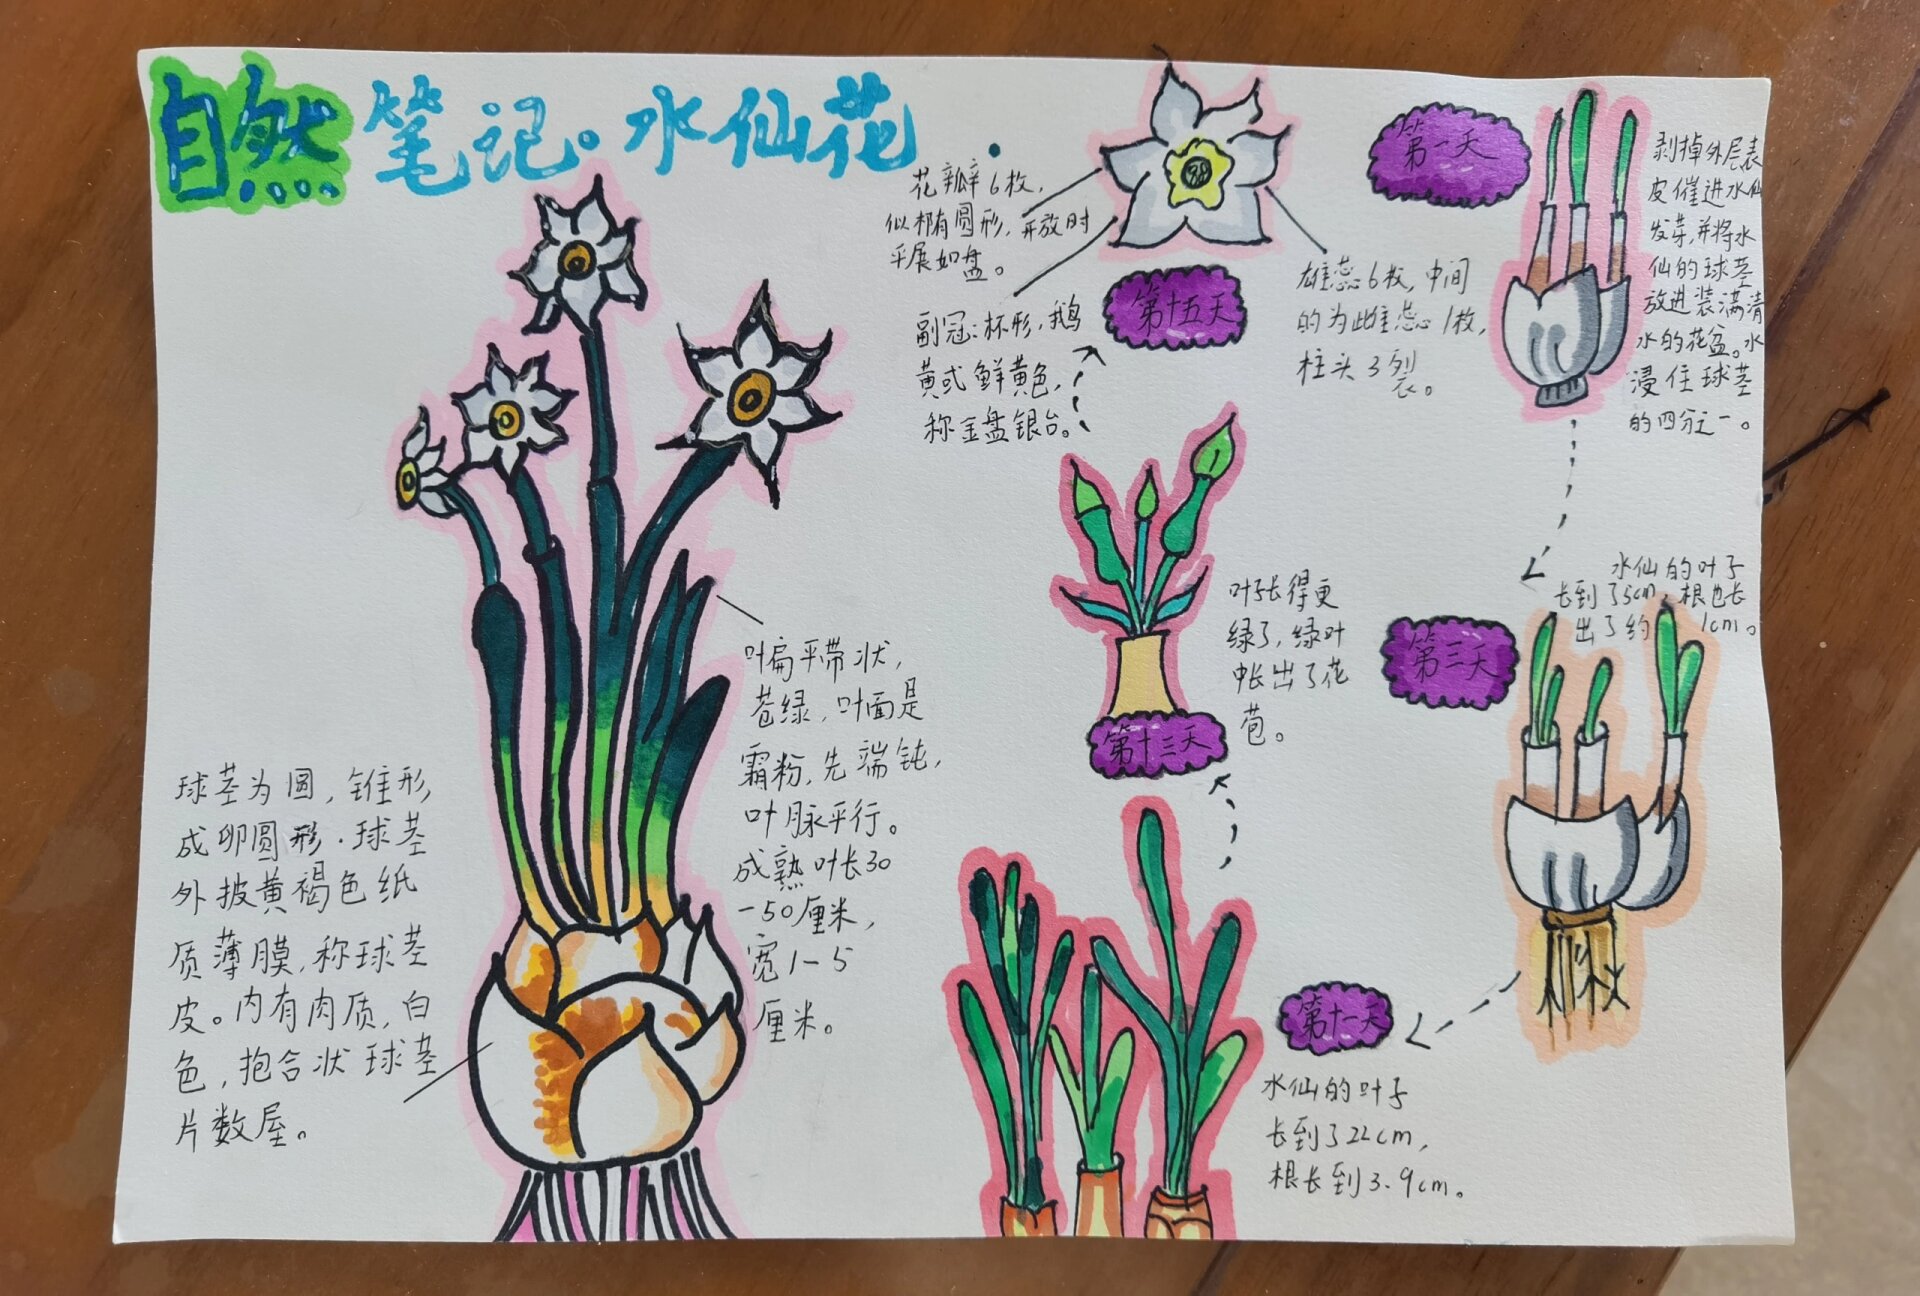 自然笔记。水仙花
花瓣6枚,
似椭圆形,开放时
平展如盘。
副冠:杯形,鹅
黄或鲜黄色,
称金盘银台。
第十五天
雄蕊6枚,中间
的为雌蕊1枚,
柱头3裂。
第一天
剥掉外层表
皮催进水仙
发芽,并将水
仙的球茎
放进装满清
水的花盆。水
浸住球茎
的四分之一。
水仙的叶子
长到了5cm,根也长
出了约1cm。
第三天
第十一天
水仙的叶子
长到了22cm,
根长到3.9cm。
叶子长得更
绿了,绿叶
中长出了花
苞。
第十三天
叶扁平带状,
苍绿,叶面是
霜粉,先端钝,
叶脉平行。
成熟叶长30
-50厘米,
宽1-5
厘米。
球茎为圆,锥形
成卵圆形.球茎
外披黄褐色纸
质薄膜,称球茎
皮。内有肉质,白
色,抱合状球茎
片数屋。